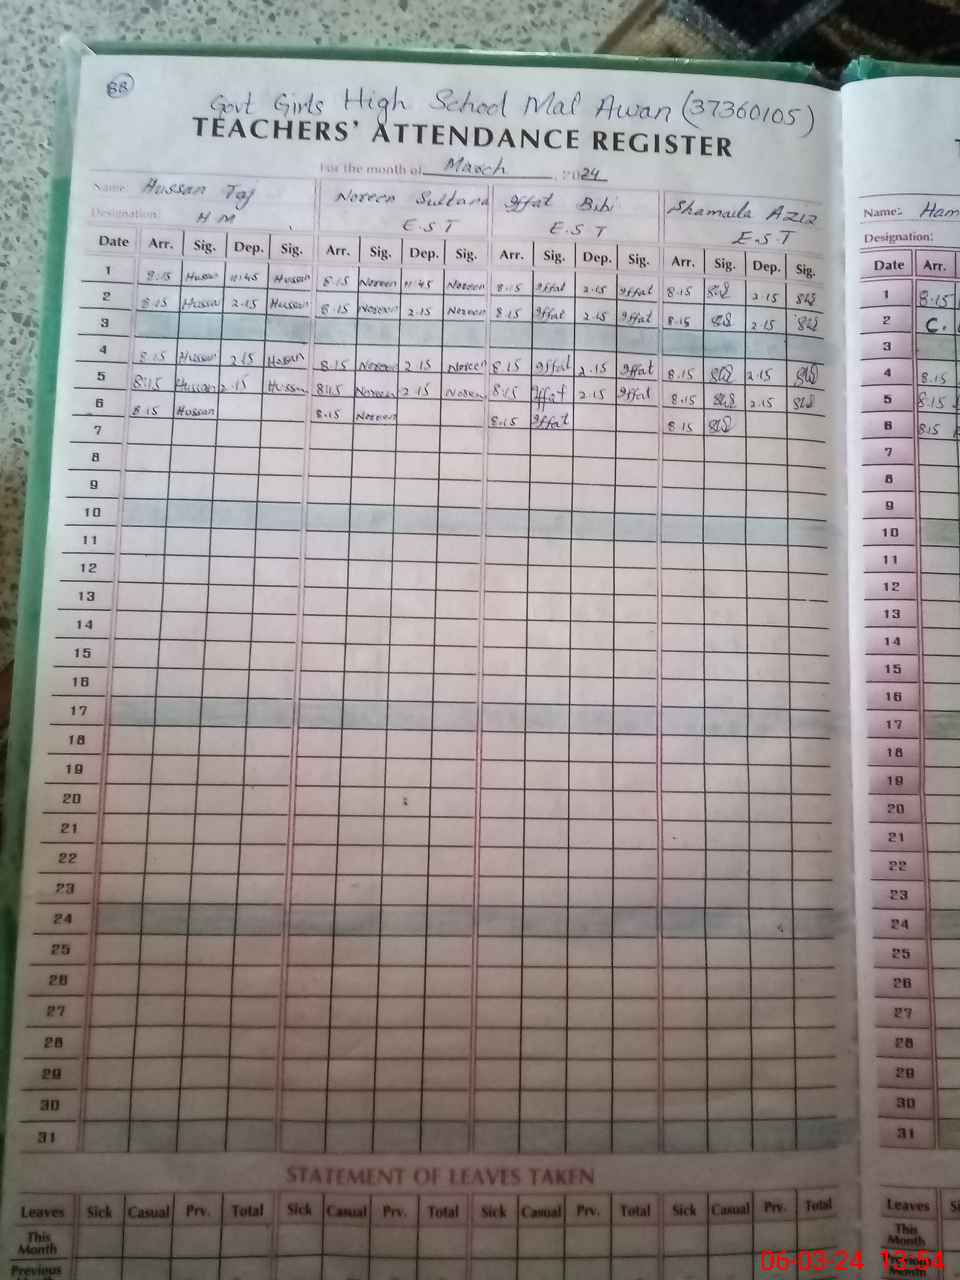 88
Govt Girls High School Mal Awan (37360105)
TEACHERS' ATTENDANCE REGISTER
For the month of March, 2024
Name: Hussan Taj Noreen Sultana Iffat Bibi Shamaila Aziz Name:- Ham
Designation: HM E.S.T E.S.T E.S.T Designation:
Date Arr. Sig. Dep. Sig. Arr. Sig. Dep. Sig. Arr. Sig. Dep. Sig. Arr. Sig. Dep. Sig. Date Arr.
1 8:15 Hussan 11:45 Hussan 8:15 Noreen 11:45 Noreen 8:15 Iffat 2:15 Iffat 8:15 2:15 1 8:15
2 8:15 Hussan 2:15 Hussan 8:15 Noreen 2:15 Noreen 8:15 Iffat 2:15 Iffat 8:15 2:15 2 C.
3 3
4 8:15 Hussan 2:15 Hussan 8:15 Noreen 2:15 Noreen 8:15 Iffat 2:15 Iffat 8:15 2:15 4 8:15
5 8:15 Hussan 2:15 Hussan 8:15 Noreen 2:15 Noreen 8:15 Iffat 2:15 Iffat 8:15 2:15 5 8:15
6 8:15 Hussan 8:15 Noreen 8:15 Iffat 8:15 6 8:15
7 7
8 8
9 9
10 10
11 11
12 12
13 13
14 14
15 15
16 16
17 17
18 18
19 19
20 20
21 21
22 22
23 23
24 24
25 25
26 26
27 27
28 28
29 29
30 30
31 31
STATEMENT OF LEAVES TAKEN
Leaves Sick Casual Prv. Total Sick Casual Prv. Total Sick Casual Prv. Total Sick Casual Prv. Total Leaves
This Month This Month
Previous Previous Month
06-03-24 13:54